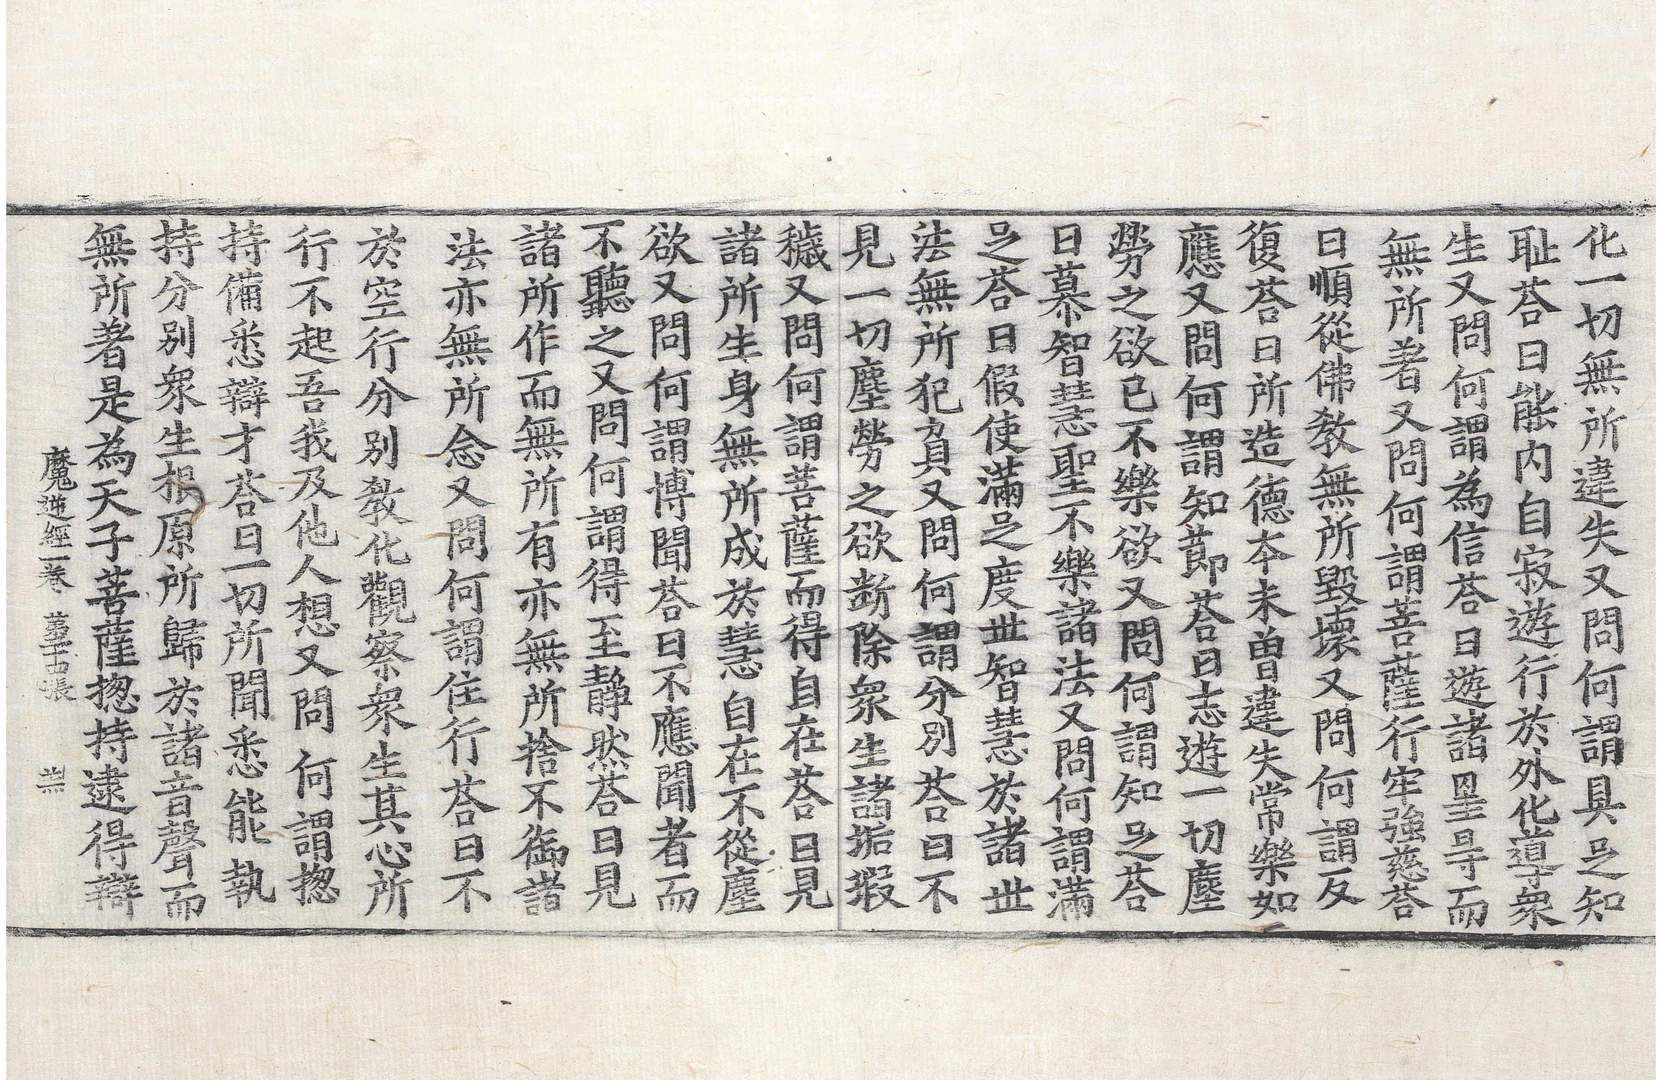 化一切無所違失又問何謂具足知
耻荅曰能內自寂遊行於外化導衆
生又問何謂為信荅曰遊諸星导而
無所著又問何謂菩薩行牢強慈荅
曰順從佛教無所毀壞又問何謂反
復荅曰所造德夲未曾違失常樂如
應又問何謂知莭荅曰志遊一切塵
勞之欲已不樂欲又問何謂知足荅
曰慕智慧聖不樂諸法又問何謂滿
足荅曰假使滿足度丗智慧於諸丗
法無所犯負又問何謂分別荅曰不
見一切塵勞之欲断除衆生諸垢瑕
穢又問何謂菩薩而得自在荅曰見
諸所生身無所成於慧自在不從塵
欲又問何謂博聞荅曰不應聞者而
不聽之又問何謂得至靜然荅曰見
諸所作而無所有亦無所捨不御諸
法亦無所念又問何謂住行荅曰不
於空行分別教化觀察衆生其心所
行不起吾我及他人想又問何謂揔
持備悉辯才荅曰一切所聞悉能執
持分別衆生根原所歸於諸音聲而
無所著是為天子菩薩揔持逮得辯
魔逆經一卷 苐二十四張